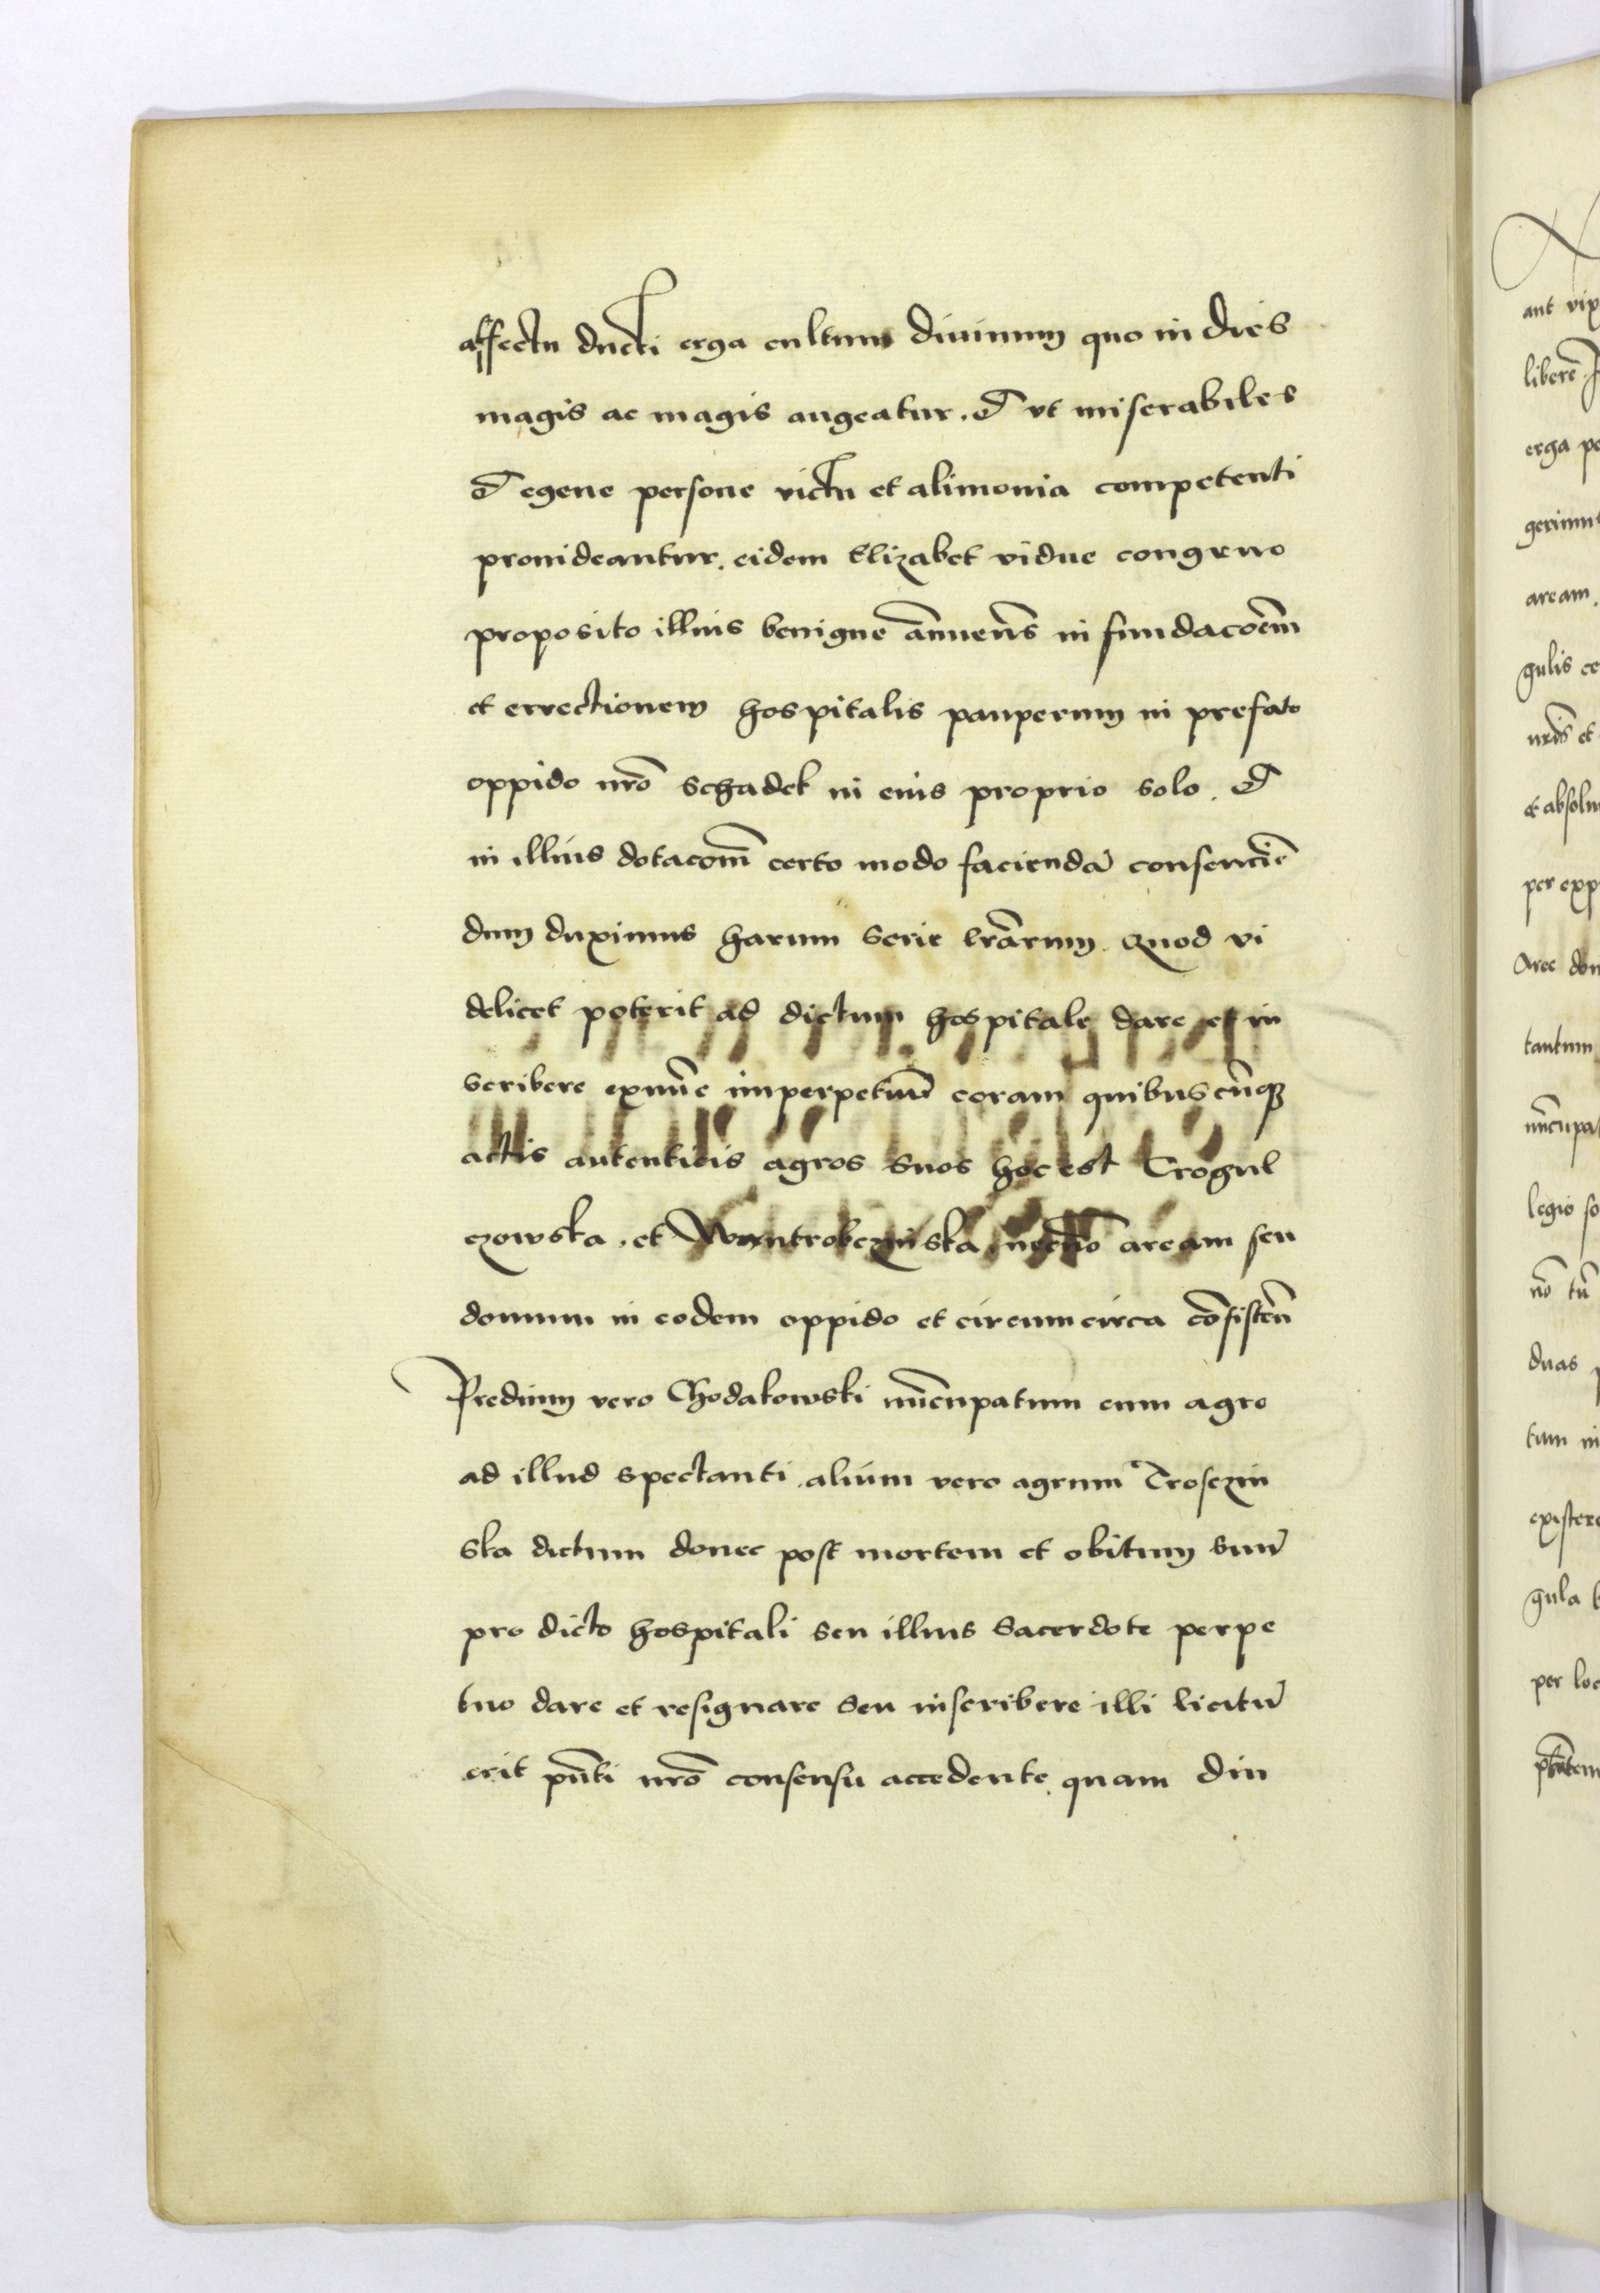 affectu ducti erga cultum diuinum quo in dies
magis ac magis augeatur. et vt miserabiles
et egene persone victu et alimonia competenti
prouideantur. eidem Elizabet vidue congruo
proposito illius benigne annuen̄s in fundacōem̄
et errectionem hospitalis pauperum in prefato
oppido nrō schadek in eius proprio solo. et
in illius dotacom̄ certo modo faciendā consencien̄
dum duximus harum serie lrārum. Quod vi
delicet poterit ad dictum hospitale dare et in
scribere exnūc imperpetuū coram quibuscūq3
actis autenticis agros suos hoc est Trogul
czowska. et Wantrobczinska, necnō aream seu
domum in eodem oppido et circumcirca cōsisteñ
Predium vero Chodakowski nūcupatum cum agro
ad illud spectanti. alium vero agrum Troszczin
ska dictum donec post mortem et obitum suū
pro dicto hospitali seu illius sacerdote perpe
tuo dare et resignare seu inscribere illi licitū
erit pn̄ti nrō consensu accedente. quam diu
ant vix
libere
erga pe
gerimus
aream.
gulis ce
nrīs et
et absolu
per exp
Aree dom
tantum
nūcupat
legio so
nō tū
duas p
tum in
existere
gula
per loc